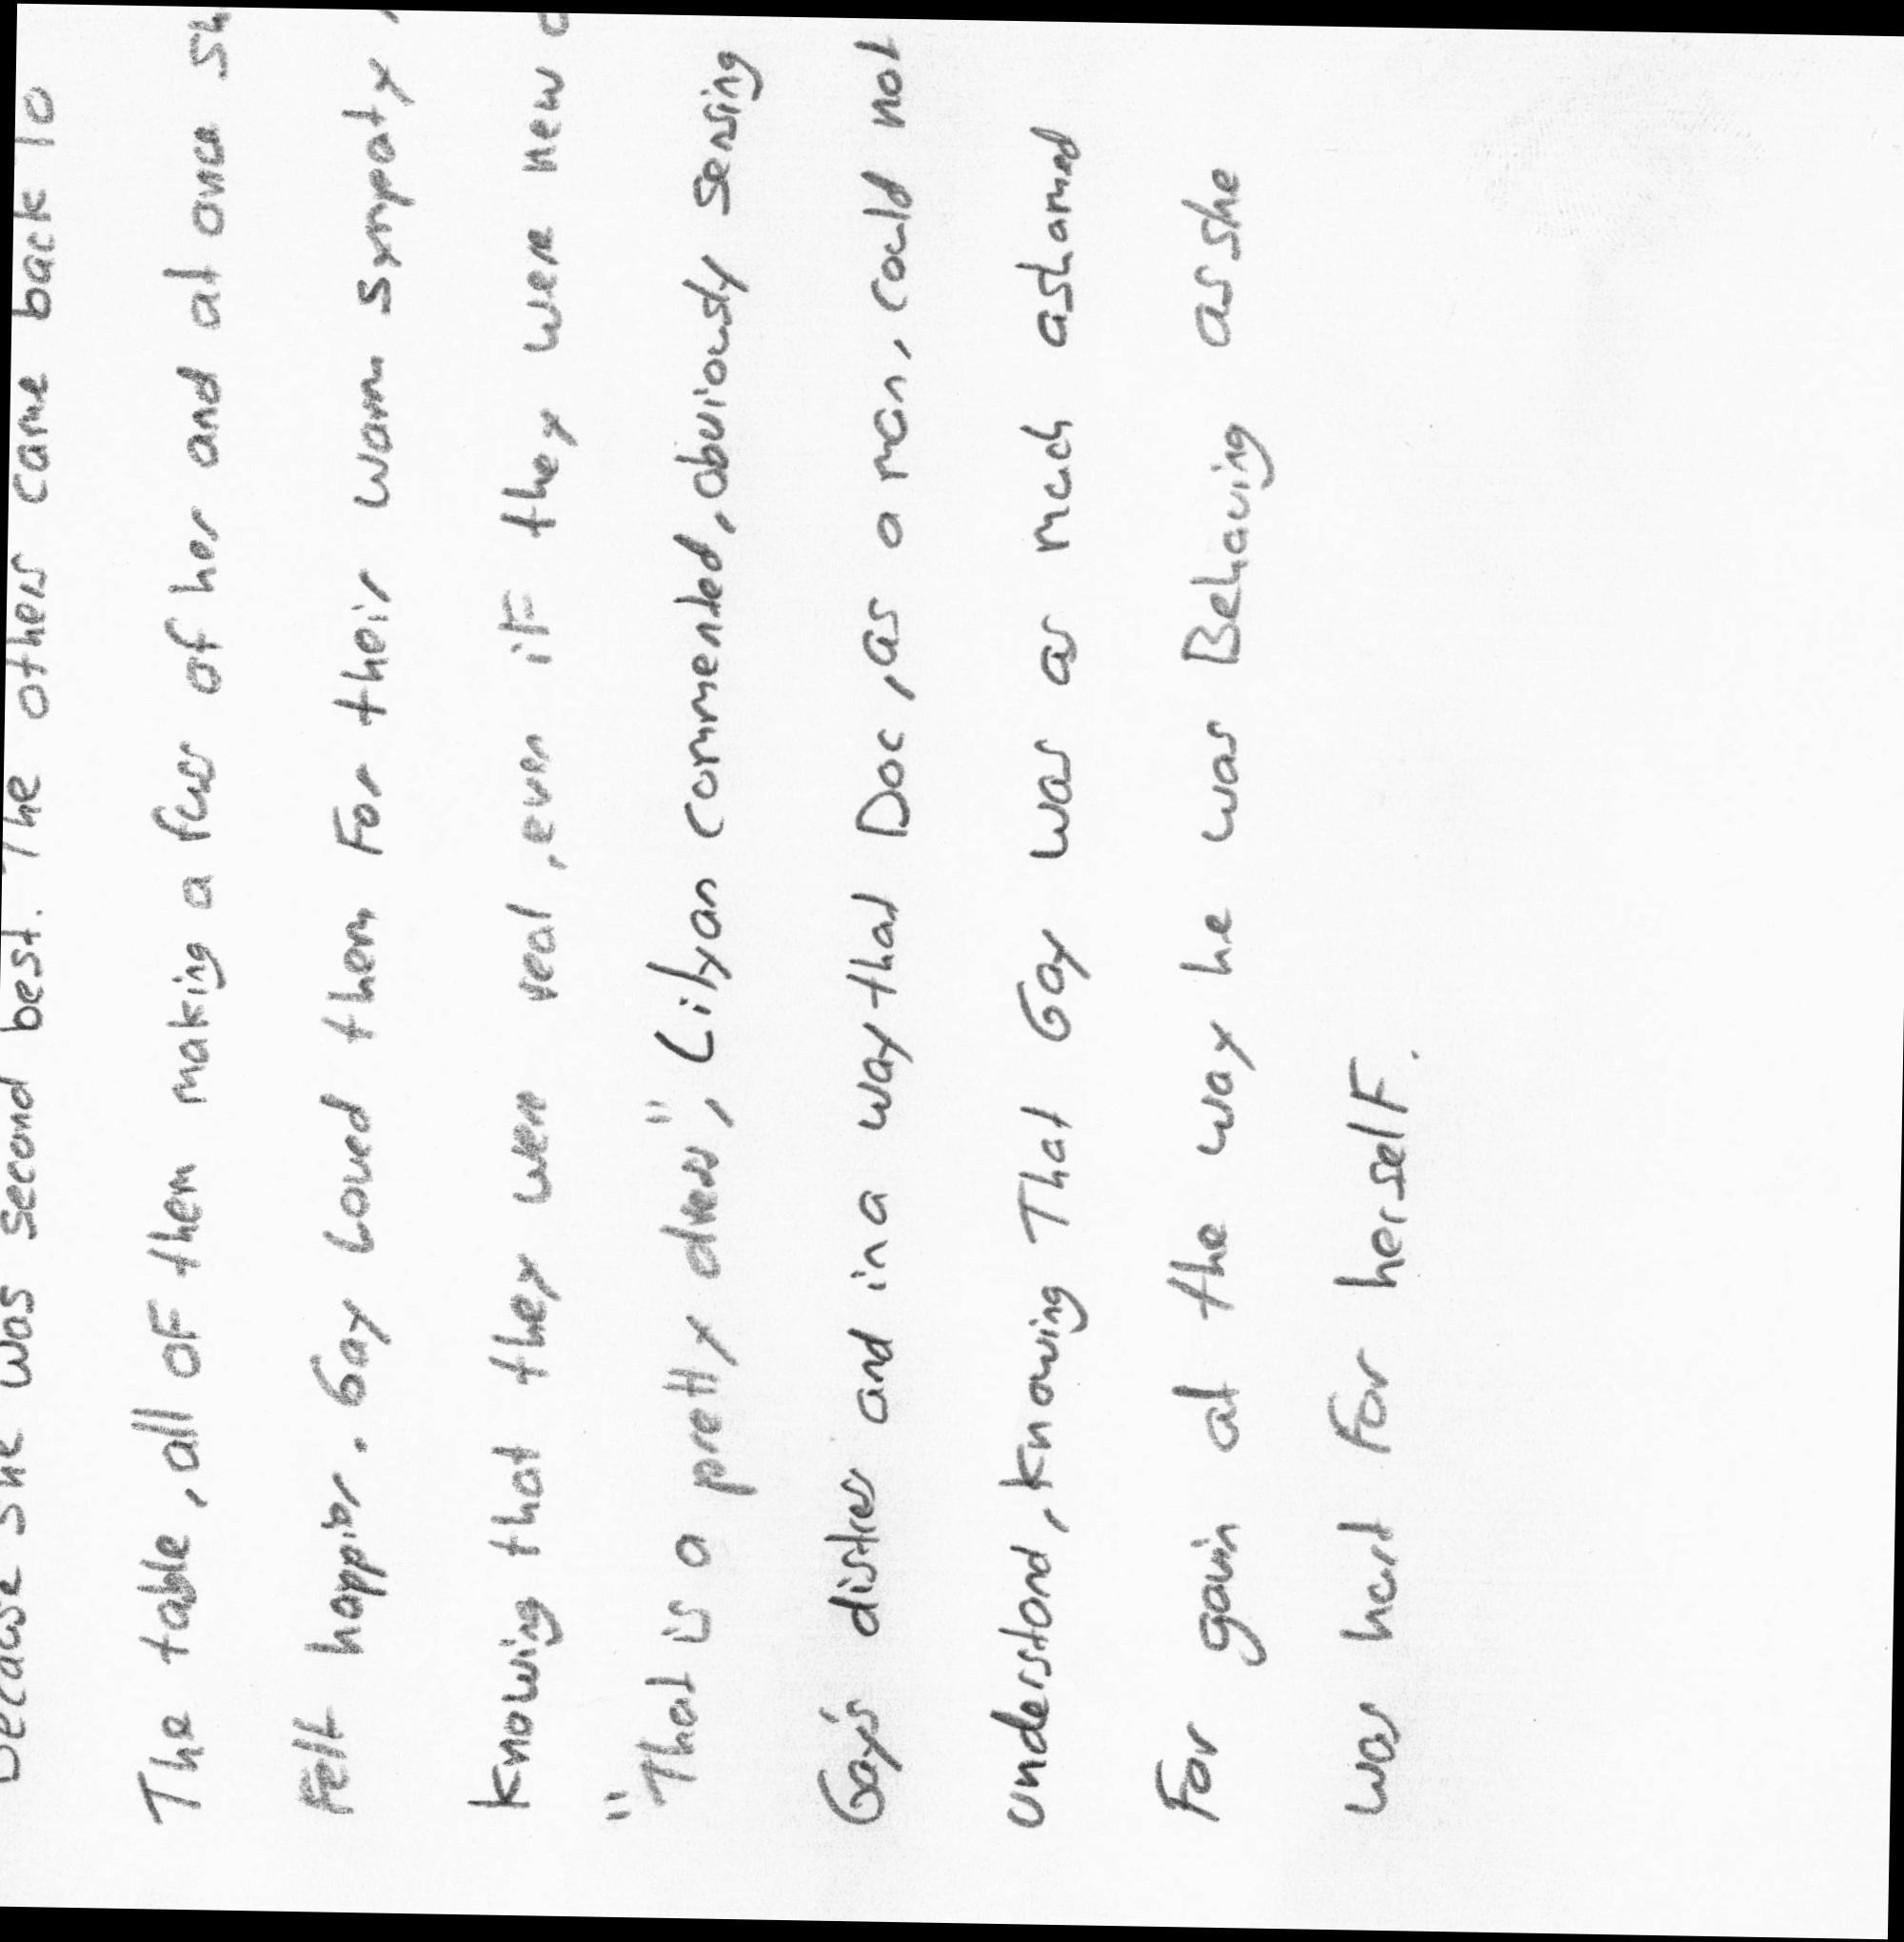 Because she was second best. The others came back to
The table, all of them making a fuss of her and at once sh
Felt happier. Gay Loved them For their warm sympaty,
knowing that they were real, even if they were new
"That is a pretty dress", Lilyan commented, obviously sensing
Gay's distress and in a way that Doc, as a man, could not
understand, knowing That Gay was as much ashamed
For gavin at the way he was Behaving as she
was hart For herself.